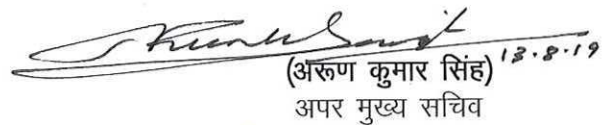 (अरूण कुमार सिंह) 13.8.19
अपर मुख्य सचिव